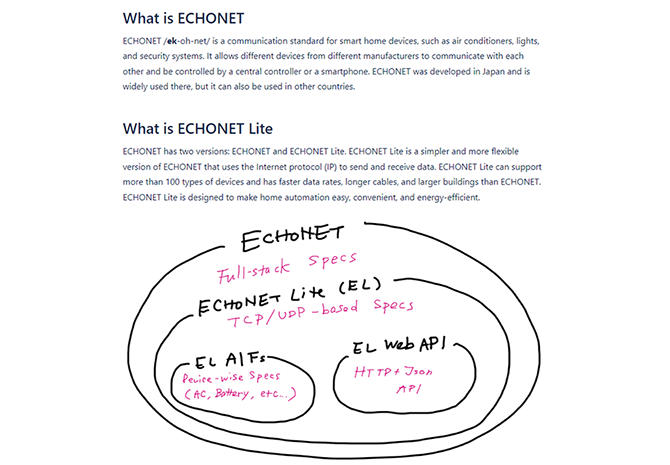 What is ECHONET
ECHONET /ek-oh-net/ is a communication standard for smart home devices, such as air conditioners, lights,
and security systems. It allows different devices from different manufacturers to communicate with each
other and be controlled by a central controller or a smartphone. ECHONET was developed in Japan and is
widely used there, but it can also be used in other countries.
What is ECHONET Lite
ECHONET has two versions: ECHONET and ECHONET Lite. ECHONET Lite is a simpler and more flexible
version of ECHONET that uses the Internet protocol (IP) to send and receive data. ECHONET Lite can support
more than 100 types of devices and has faster data rates, longer cables, and larger buildings than ECHONET.
ECHONET Lite is designed to make home automation easy, convenient, and energy-efficient.
ECHONET
Full-stack Specs
ECHONET Lite (EL)
TCP/UDP-based Specs
EL AIFs
Device-wise Specs
(AC, Battery, etc...)
EL Web API
HTTP + Json
API